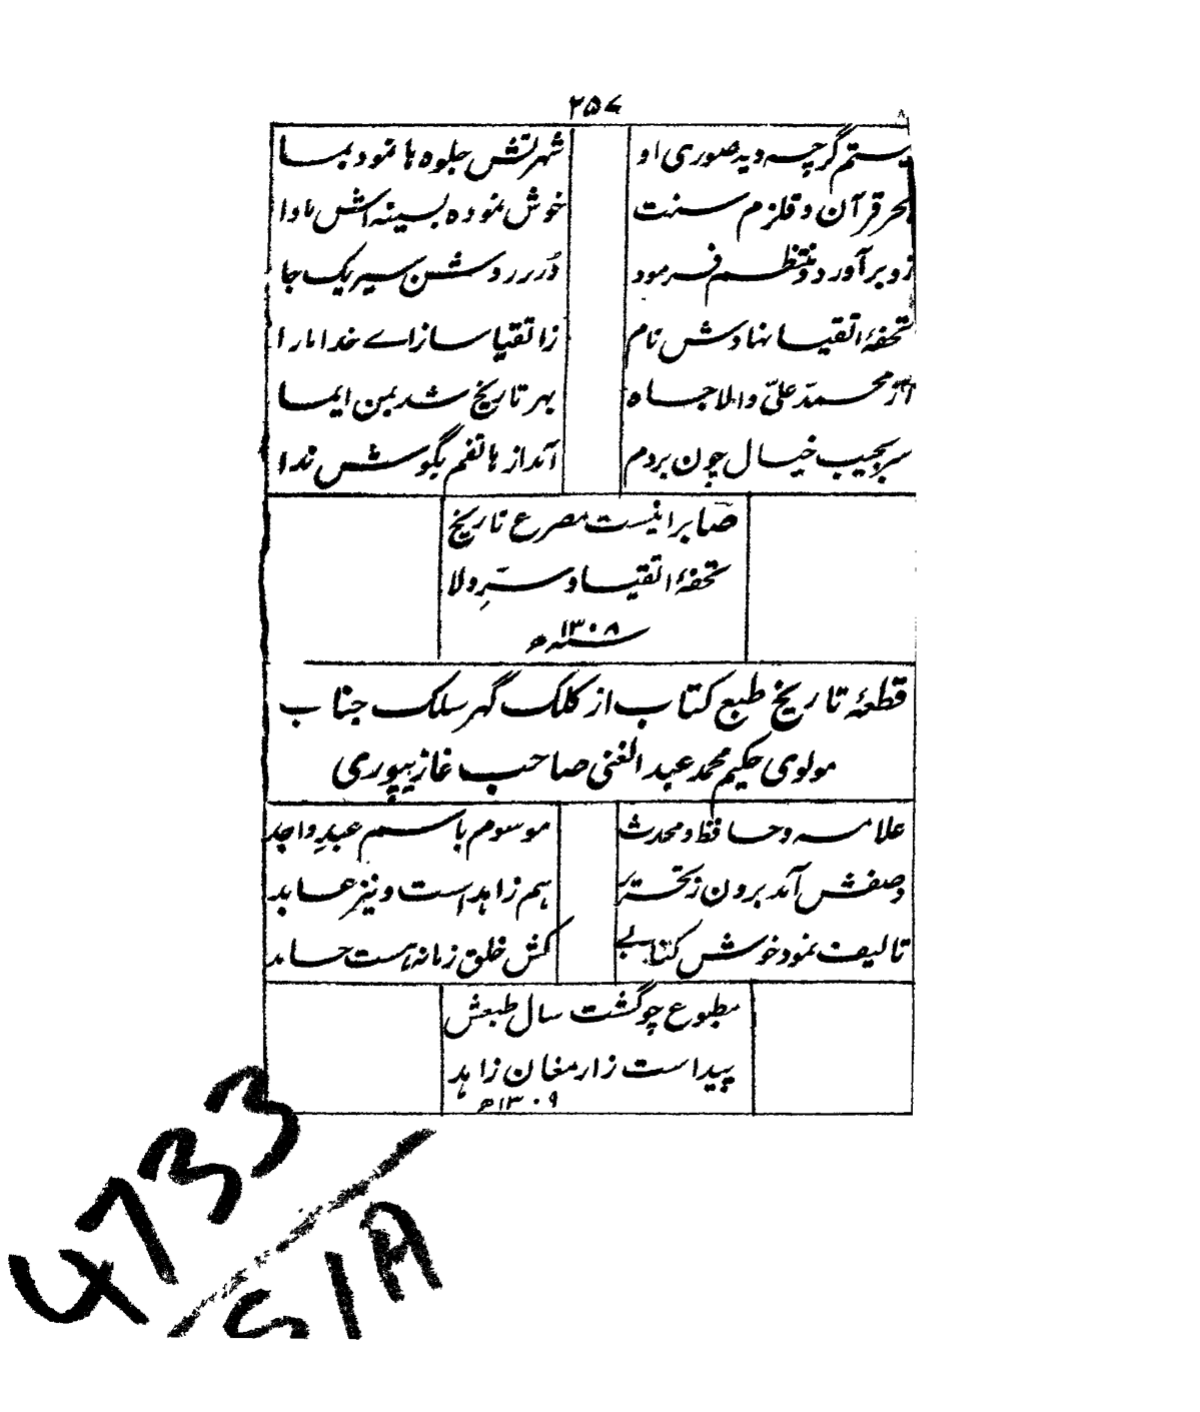 ۲۵۷
نیستم گرچه دید صوری او شهرتش جلوه ها نمود بما
بحر قرآن و قلزم سنت خوش نموده بسینه اش ماوا
زو برآورد و منتظم فرمود دُرر روشن سیر یک جا
تحفهٔ اتقیا نهادش نام ز اتقیا ساز اے خدا ما را
از محمد علیّ والا جاه بهر تاریخ شد بمن ایما
سر بجیب خیال چون بردم آمد از هاتفم بگوش ندا
صابرا نیست مصرع تاریخ
تحفهٔ اتقیا و سرِّ ولا
سنه ۱۳۰۸ ھ
قطعهٔ تاریخ طبع کتاب از کلک گهر سلک جناب
مولوی حکیم محمد عبد الغنی صاحب غازیپوری
علامه و حافظ و محدث موسوم باسم عبدِ واجد
وصفش آمد برون ز تحریر هم زاهد است و نیز عابد
تالیف نمود خوش کتابے کش خلق زمانه هست حامد
مطبوع چو گشت سال طبعش
پیداست ز ارمغان زاهد
۱۳۰۹ ھ
4733
S/A